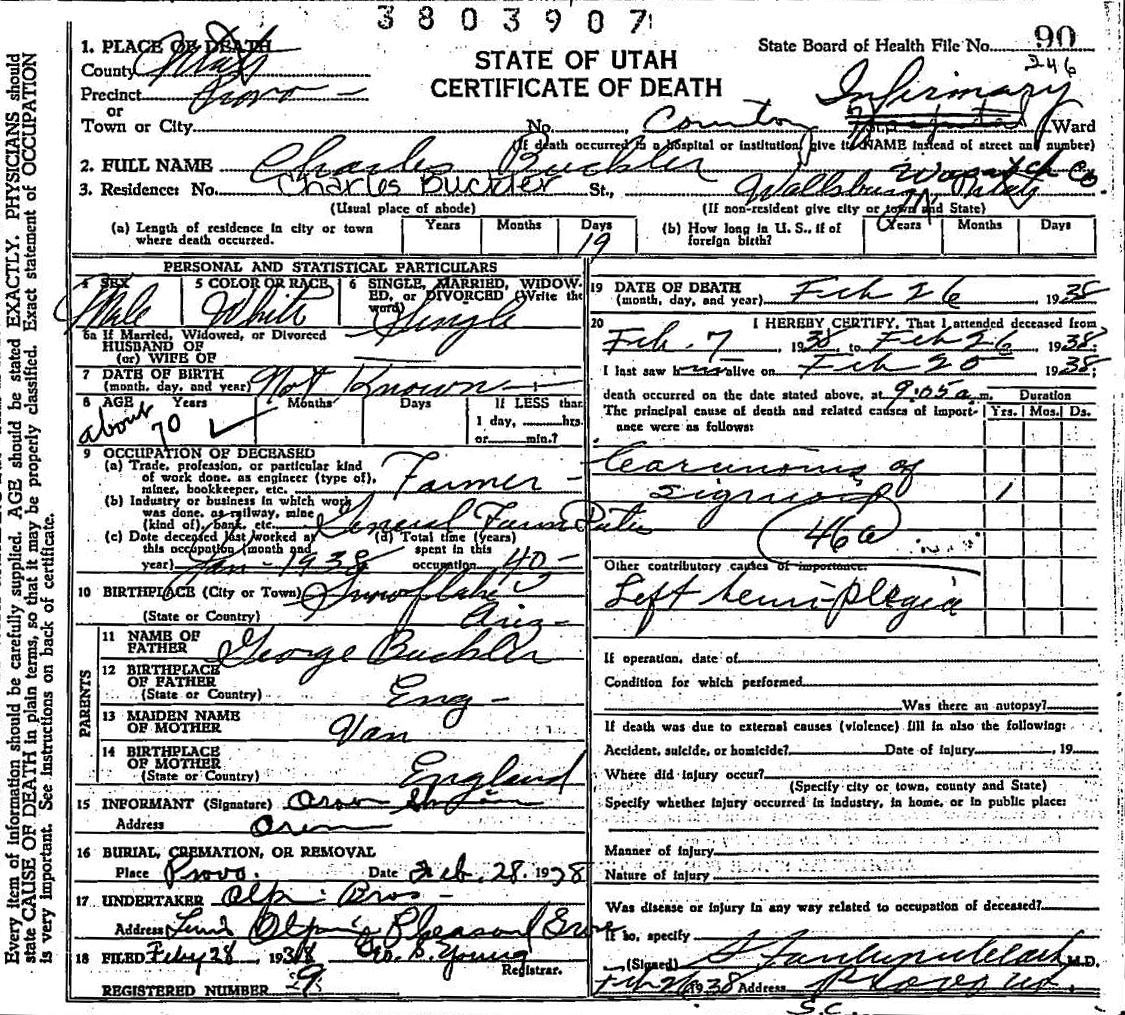 3803907
1. PLACE OF DEATH
STATE OF UTAH
CERTIFICATE OF DEATH
State Board of Health File No. 90
246
County Utah
Precinct Provo
or
Town or City No. County Infirmary Hospital Ward
(If death occurred in a hospital or institution, give its NAME instead of street and number)
2. FULL NAME Charles Buckler
Charles Buckler
3. Residence: No. St., Wallsburg Wasatch Co. Utah
(Usual place of abode) (If non-resident give city or town and State)
(a) Length of residence in city or town where death occurred. Years Months Days 19
(b) How long in U. S., if of foreign birth? Years Months Days
PERSONAL AND STATISTICAL PARTICULARS
4 SEX Male
5 COLOR OR RACE White
6 SINGLE, MARRIED, WIDOWED, or DIVORCED (Write the word) Single
6a If Married, Widowed, or Divorced
HUSBAND OF
(or) WIFE OF
7 DATE OF BIRTH
(month, day, and year) Not Known
8 AGE Years Months Days If LESS than
about 70 1 day, hrs.
or min.?
9 OCCUPATION OF DECEASED
(a) Trade, profession, or particular kind
of work done, as engineer (type of),
miner, bookkeeper, etc. Farmer
(b) Industry or business in which work
was done, as railway, mine
(kind of), bank, etc. General Farm Duties
(c) Date deceased last worked at
this occupation (month and
year) Jan - 1938
(d) Total time (years)
spent in this
occupation 40
10 BIRTHPLACE (City or Town) Snowflake
(State or Country) Ariz
PARENTS
11 NAME OF
FATHER George Buckler
12 BIRTHPLACE
OF FATHER
(State or Country) Eng
13 MAIDEN NAME
OF MOTHER Van
14 BIRTHPLACE
OF MOTHER
(State or Country) England
15 INFORMANT (Signature)
Address Orem
16 BURIAL, CREMATION, OR REMOVAL
Place Provo. Date Feb. 28. 1938
17 UNDERTAKER Olpin Bros
Address Olpin Pleasant Grove
18 FILED Feby 28, 1938 Geo. S. Young
Registrar.
REGISTERED NUMBER 29
19 DATE OF DEATH
(month, day, and year) Feb 26 1938
20 I HEREBY CERTIFY, That I attended deceased from
Feb. 7 1938 to Feb 26 1938;
I last saw h alive on Feb 25 1938;
death occurred on the date stated above, at 9:05 a. m. Duration
The principal cause of death and related causes of importance were as follows: Yrs. Mos. Ds.
Carcinoma of
sigmoid 1
46a
Other contributory causes of importance:
Left hemi-plegia
If operation, date of
Condition for which performed
Was there an autopsy?
If death was due to external causes (violence) fill in also the following:
Accident, suicide, or homicide? Date of injury , 19
Where did injury occur?
(Specify city or town, county and State)
Specify whether injury occurred in industry, in home, or in public place:
Manner of injury
Nature of injury
Was disease or injury in any way related to occupation of deceased?
If so, specify
(Signed) M.D.
Feb 26 1938 Address Provo
S.C.
Every item of information should be carefully supplied. AGE should be stated EXACTLY. PHYSICIANS should
state CAUSE OF DEATH in plain terms, so that it may be properly classified. Exact statement of OCCUPATION
is very important. See instructions on back of certificate.